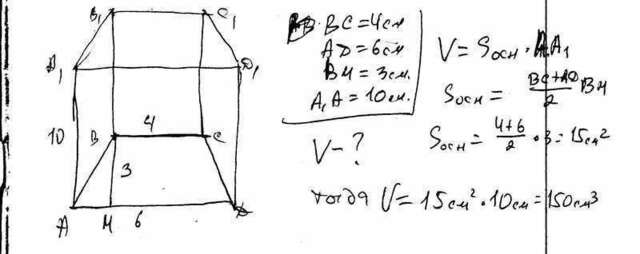 B₁
C₁
A₁
D₁
10
B
4
C
3
A
H
6
D
BC=4см
AD=6см
BH=3см.
A₁A=10см.
V-?
V=Sосн·AA₁
Sосн=(BC+AD)/2 BH
Sосн=(4+6)/2·3=15см²
тогда V=15см²·10см=150см³